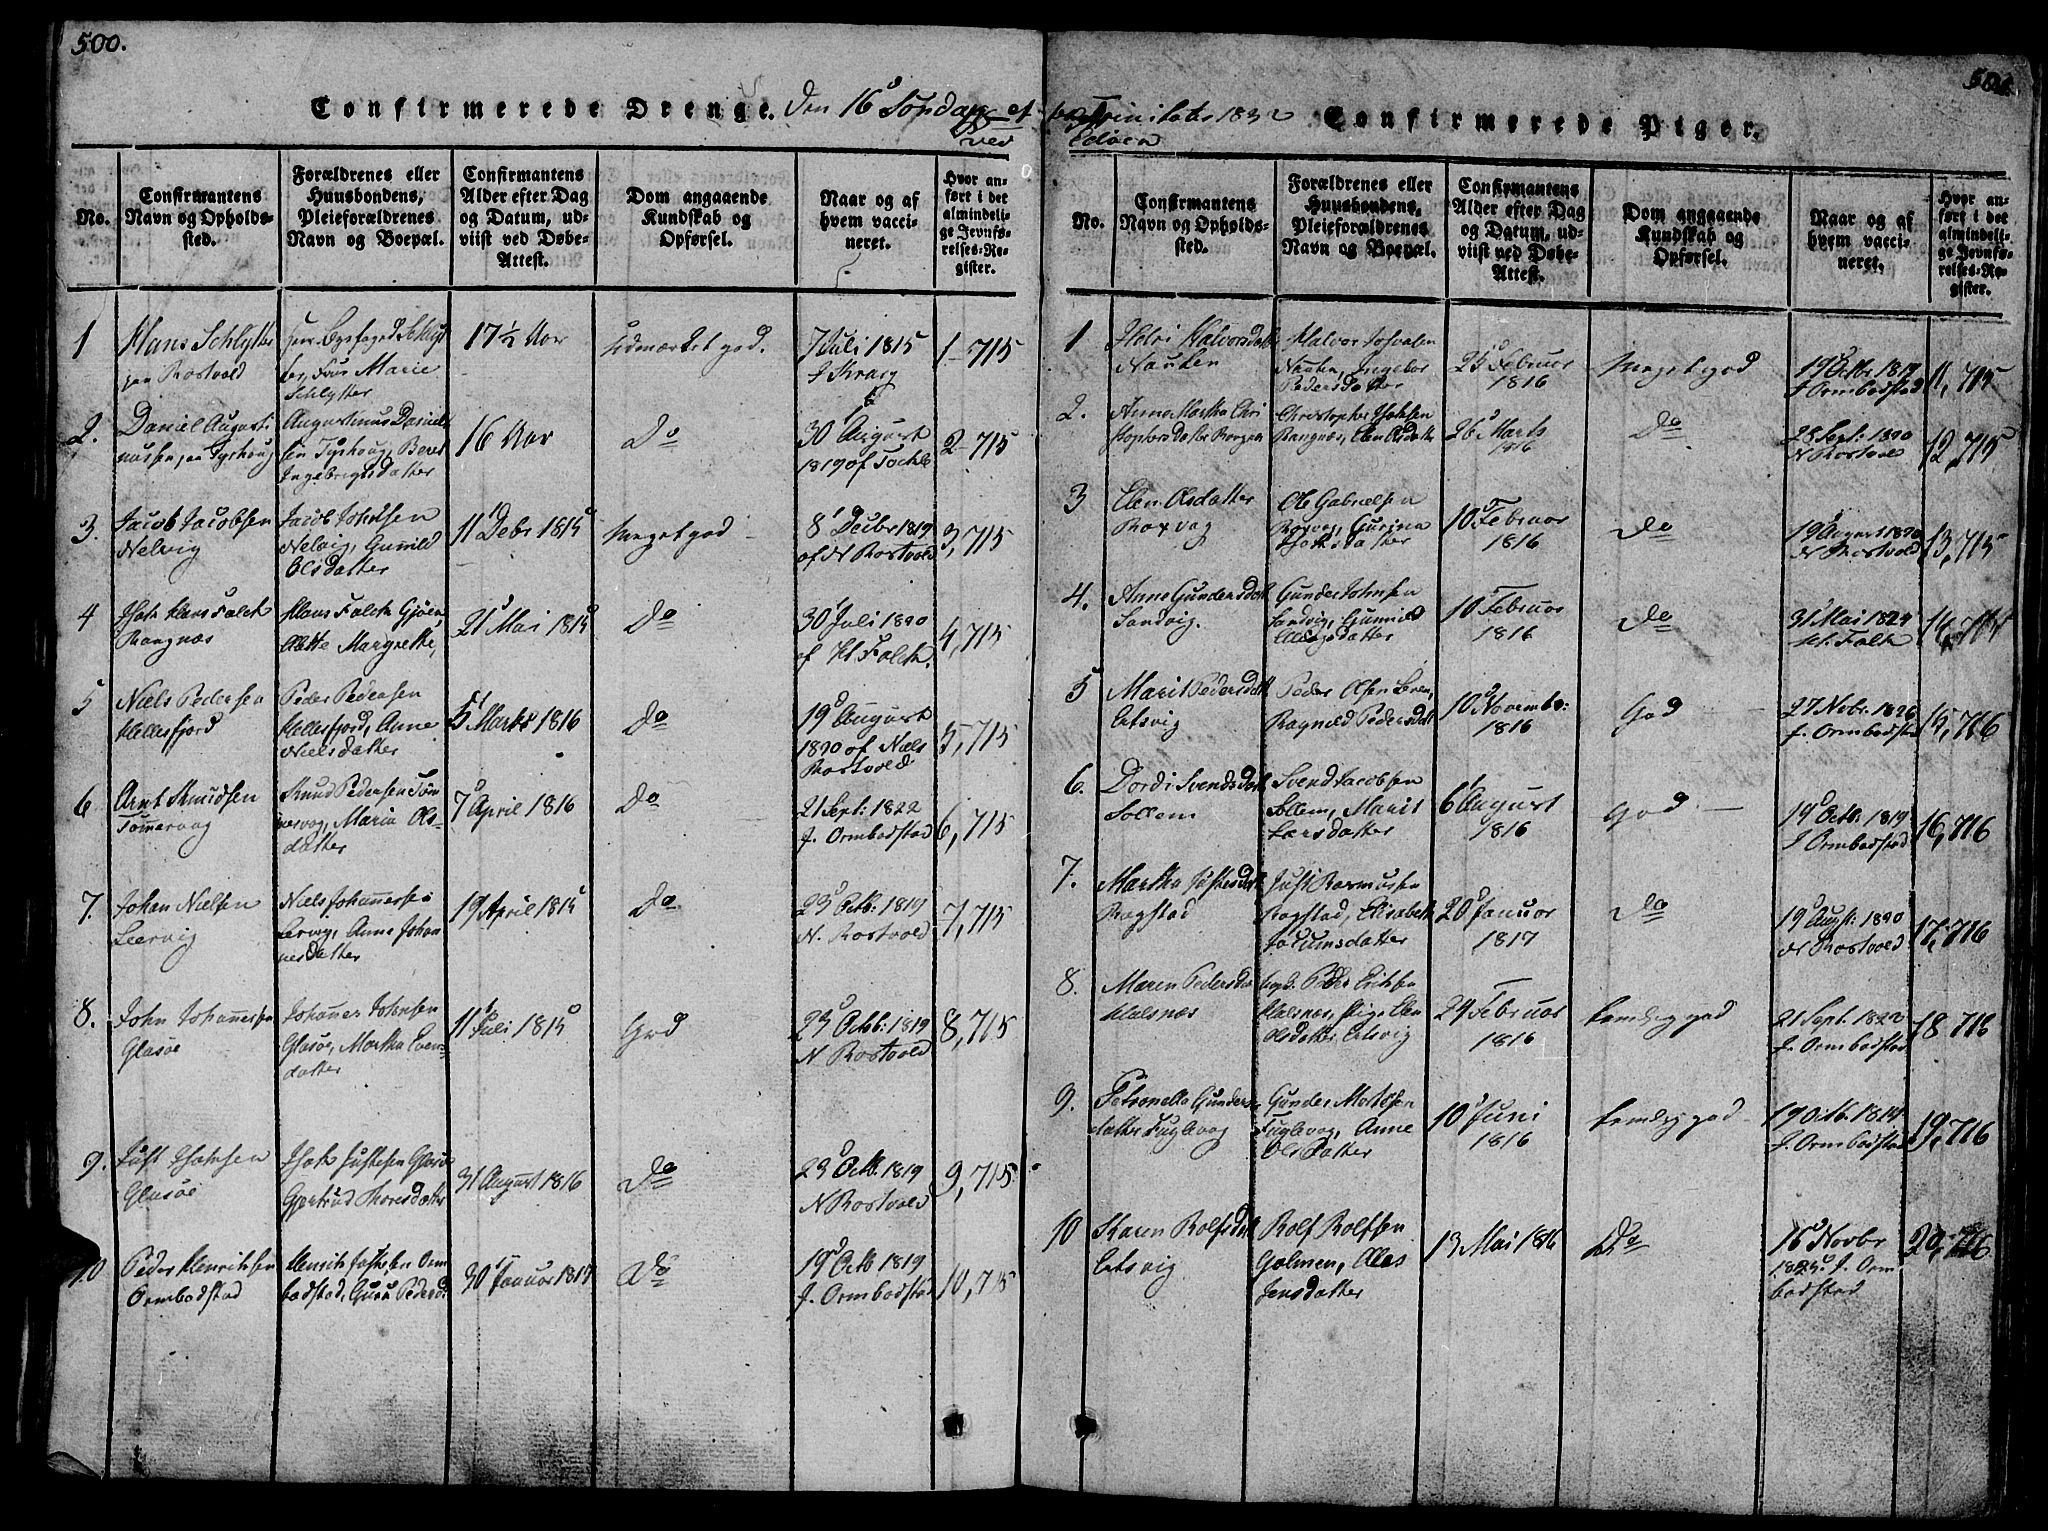 500.
Confirmerede Drenge. Den 16de Søndag
ved
No.
Confirmantens
Navn og Opholds-
sted.
Forældrenes eller
Huusbondens,
Pleieforældrenes
Navn og Boepæl.
Confirmantens
Alder efter Dag
og Datum, ud-
viist ved Døbe-
Attest.
Dom angaaende
Kundskab og
Opførsel.
Naar og af
hvem vacci-
neret.
Hvor an-
ført i det
almindeli-
ge Jevnfø-
relses-Re-
gister.
1
Hans Schlytter
paa Rostvold
Schlytter
17½ Aar
Udmærket god.
7 Juli 1815
1-715
2.
Daniel Augusti
nussen
Augustinus Daniel
sen Tyrhoug, Beret
Ingebrigtsdatter
16 Aar
Do
30 August
1819 of
2-715
3.
Jacob Jacobsen
Nelvig
Jacob Johnsen
Nelvig, Gunnild
Olsdatter
11 Debr 1815
Meget god
8 Decbr 1819
of N Rostvold
3,715
4
Hans Falch
Rangnæs
Hans Falch Gjøen,
Aette Margrethe,
21 Mai 1815
Do
30 Juli 1820
of H Falch.
4,715
5
Niels Pedersen
Hellesfjord
Peder Pedersen
Hellesfjord, Anne
Nielsdatter
5 Marts 1816
Do
19 August
1820 of Niels
Rostvold
5,715
6
Arnt Knudsen
Tømervog
Knud Pedersen Tøm
mervog, Maria Ols-
datter
7 April 1816
Do
21 Sept: 1822
J. Ormbadstad
6,715
7.
Johan Nielsen
Leervig
Niels Johannesen
Lervig, Anne Johan
nesdatter
19 April 1815
Do
23 Octb: 1819
N. Rostvold
7,715
8.
John Johannesen
Glasøe
Johannes Johnsen
Glasøe, Martha Even-
datter
11 Juli 1815
God
23 Octb: 1819
N Rostvold
8,715
9.
Just
Glasøe
Justesen Glasøe
Gjertrud Thoresdatter
31 August 1816
Do
23 Octb. 1819
N Rostvold
9,715
10
Peder Henrichsen
Ormbadstad
Henrich Justesen Orm
badstad, Guru Pedersd
30 Januar 1817
Do
19 Octb 1819
J. Ormbadstad
10,715
501.
Trinitatis 1832
Edøen
Confirmerede Piger.
No.
Confirmantens
Navn og Opholds-
sted.
Forældrenes eller
Huusbondens,
Pleieforældrenes
Navn og Boepæl.
Confirmantens
Alder efter Dag
og Datum, ud-
viist ved Døbe-
Attest.
Dom angaaende
Kundskab og
Opførsel.
Naar og af
hvem vacci-
neret.
Hvor an-
ført i det
almindeli-
ge Jevnfø-
relses-Re-
gister.
1
Halvorsdatt
Nausten
Halvor
Nausten, Ingebor
Pedersdatter
25 Februar
1816
Meget god
19 Octbr. 1819
J Ormbadstad
11,715
2.
Anne Martha Chri
stophersdatter
Christopher
Rangnæs, Elen Olsdatter
26 Marts
1816
Do
28 Sept: 1820
N Rostvold
12,715
3
Elen Olsdatter
Roxvog
Ole Gabrielsen
Roxvog, Gurina
10 Februar
1816
Do
19 August 1820
N Rostvold
13,715
4.
Anne Gundersdatt
Sandvig.
Gunder Johnsen
Sandvig, Gunnild
10 Februar
1816
Do
31 Mai 1824
H. Falch
14,715
5
Marit Pedersdatt
Ertsvig
Peder Olsen
Ragnild Pedersdatt
10 Novembr:
1816
God
27 Nobr. 1826
J. Ormbadstad
15,716
6.
Dordi Svendsdatt
Sollem
Svend Jacobsen
Sollem, Marit
Larsdatter
6 August
1816
God
19 Octb: 1819
J Ormbadstad
16,716
7.
Martha Justesdatt
Rogstad
Just Rasmussen
Rogstad, Elisabeth
20 Januar
1817
Do
19 Augst: 1820
N Rostvold
17,716
8.
Maren Pedersda
Halsnæs
Peder Erichsen
Halsnæs, Pige Elen
Olsdatter Ertsvig
24 Februar
1816
temlig god
21 Sept. 1822
J. Ormbadstad
18 716
9.
Petronella Gunders-
datter Fuglevog
Gunder Mortsen
Fuglevog, Anne
Olsdatter
10 Juni
1816
temlig god
19 Octb. 1819
J. Ormbadstad
19,716
10
Karen Rolfsdatt
Ertsvig
Rolf Rolfsen
Golmen, Olas
Jensdatter
13 Mai 1816
Do
16 Novbr
1823. J. Orm
badstad
20,716